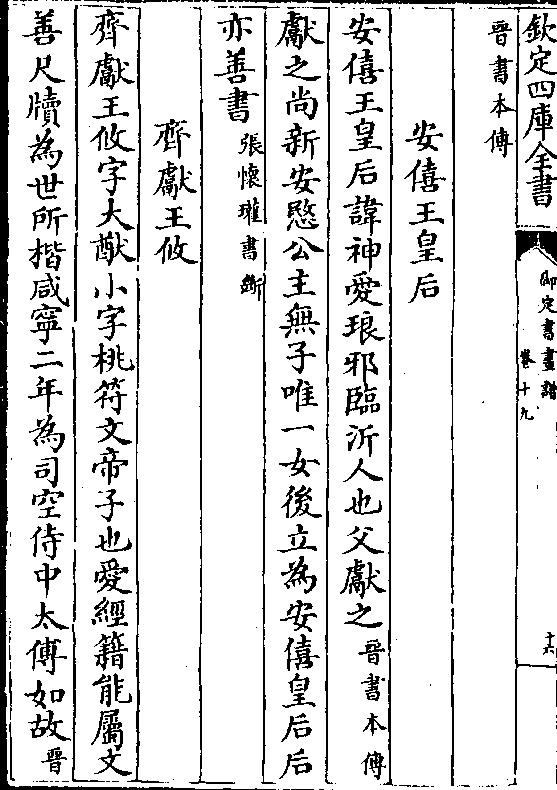 欽定四庫全書
御定書畫譜
卷十九
十六
晉書本傳
安僖王皇后
安僖王皇后諱神愛琅邪臨沂人也父獻之晉書本傳
獻之尚新安愍公主無子唯一女後立為安僖皇后后
亦善書張懷瓘書斷
齊獻王攸
齊獻王攸字大猷小字桃符文帝子也愛經籍能屬文
善尺牘為世所楷咸寧二年為司空侍中太傅如故晉